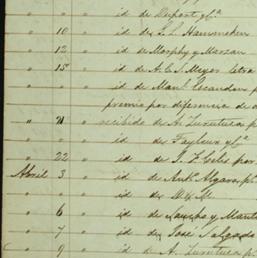 " " " id de Dupont yCa
" 10 " id de S. L. Hannemken
" 12 " id de Morphy y Marzan
" 15 " id de A. C. S. Meyer letra
" " " id de Manl Escandon p
premio por diferencia de
" 21 " recibido de A. Zurutuza p
" " " id de Fayleur yCa
" 22 " id de J. F. Celis por
Abril 3 " id de Ant. Algara p
" " " id de M&M
" 6 " id de Sancho y Mant
" 7 " id de José Salgado
" 9 " id de A. Zurutuza p